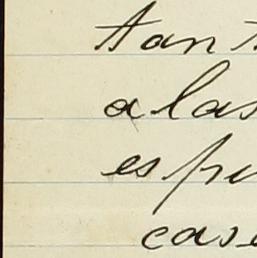 tant
a las
espu
case